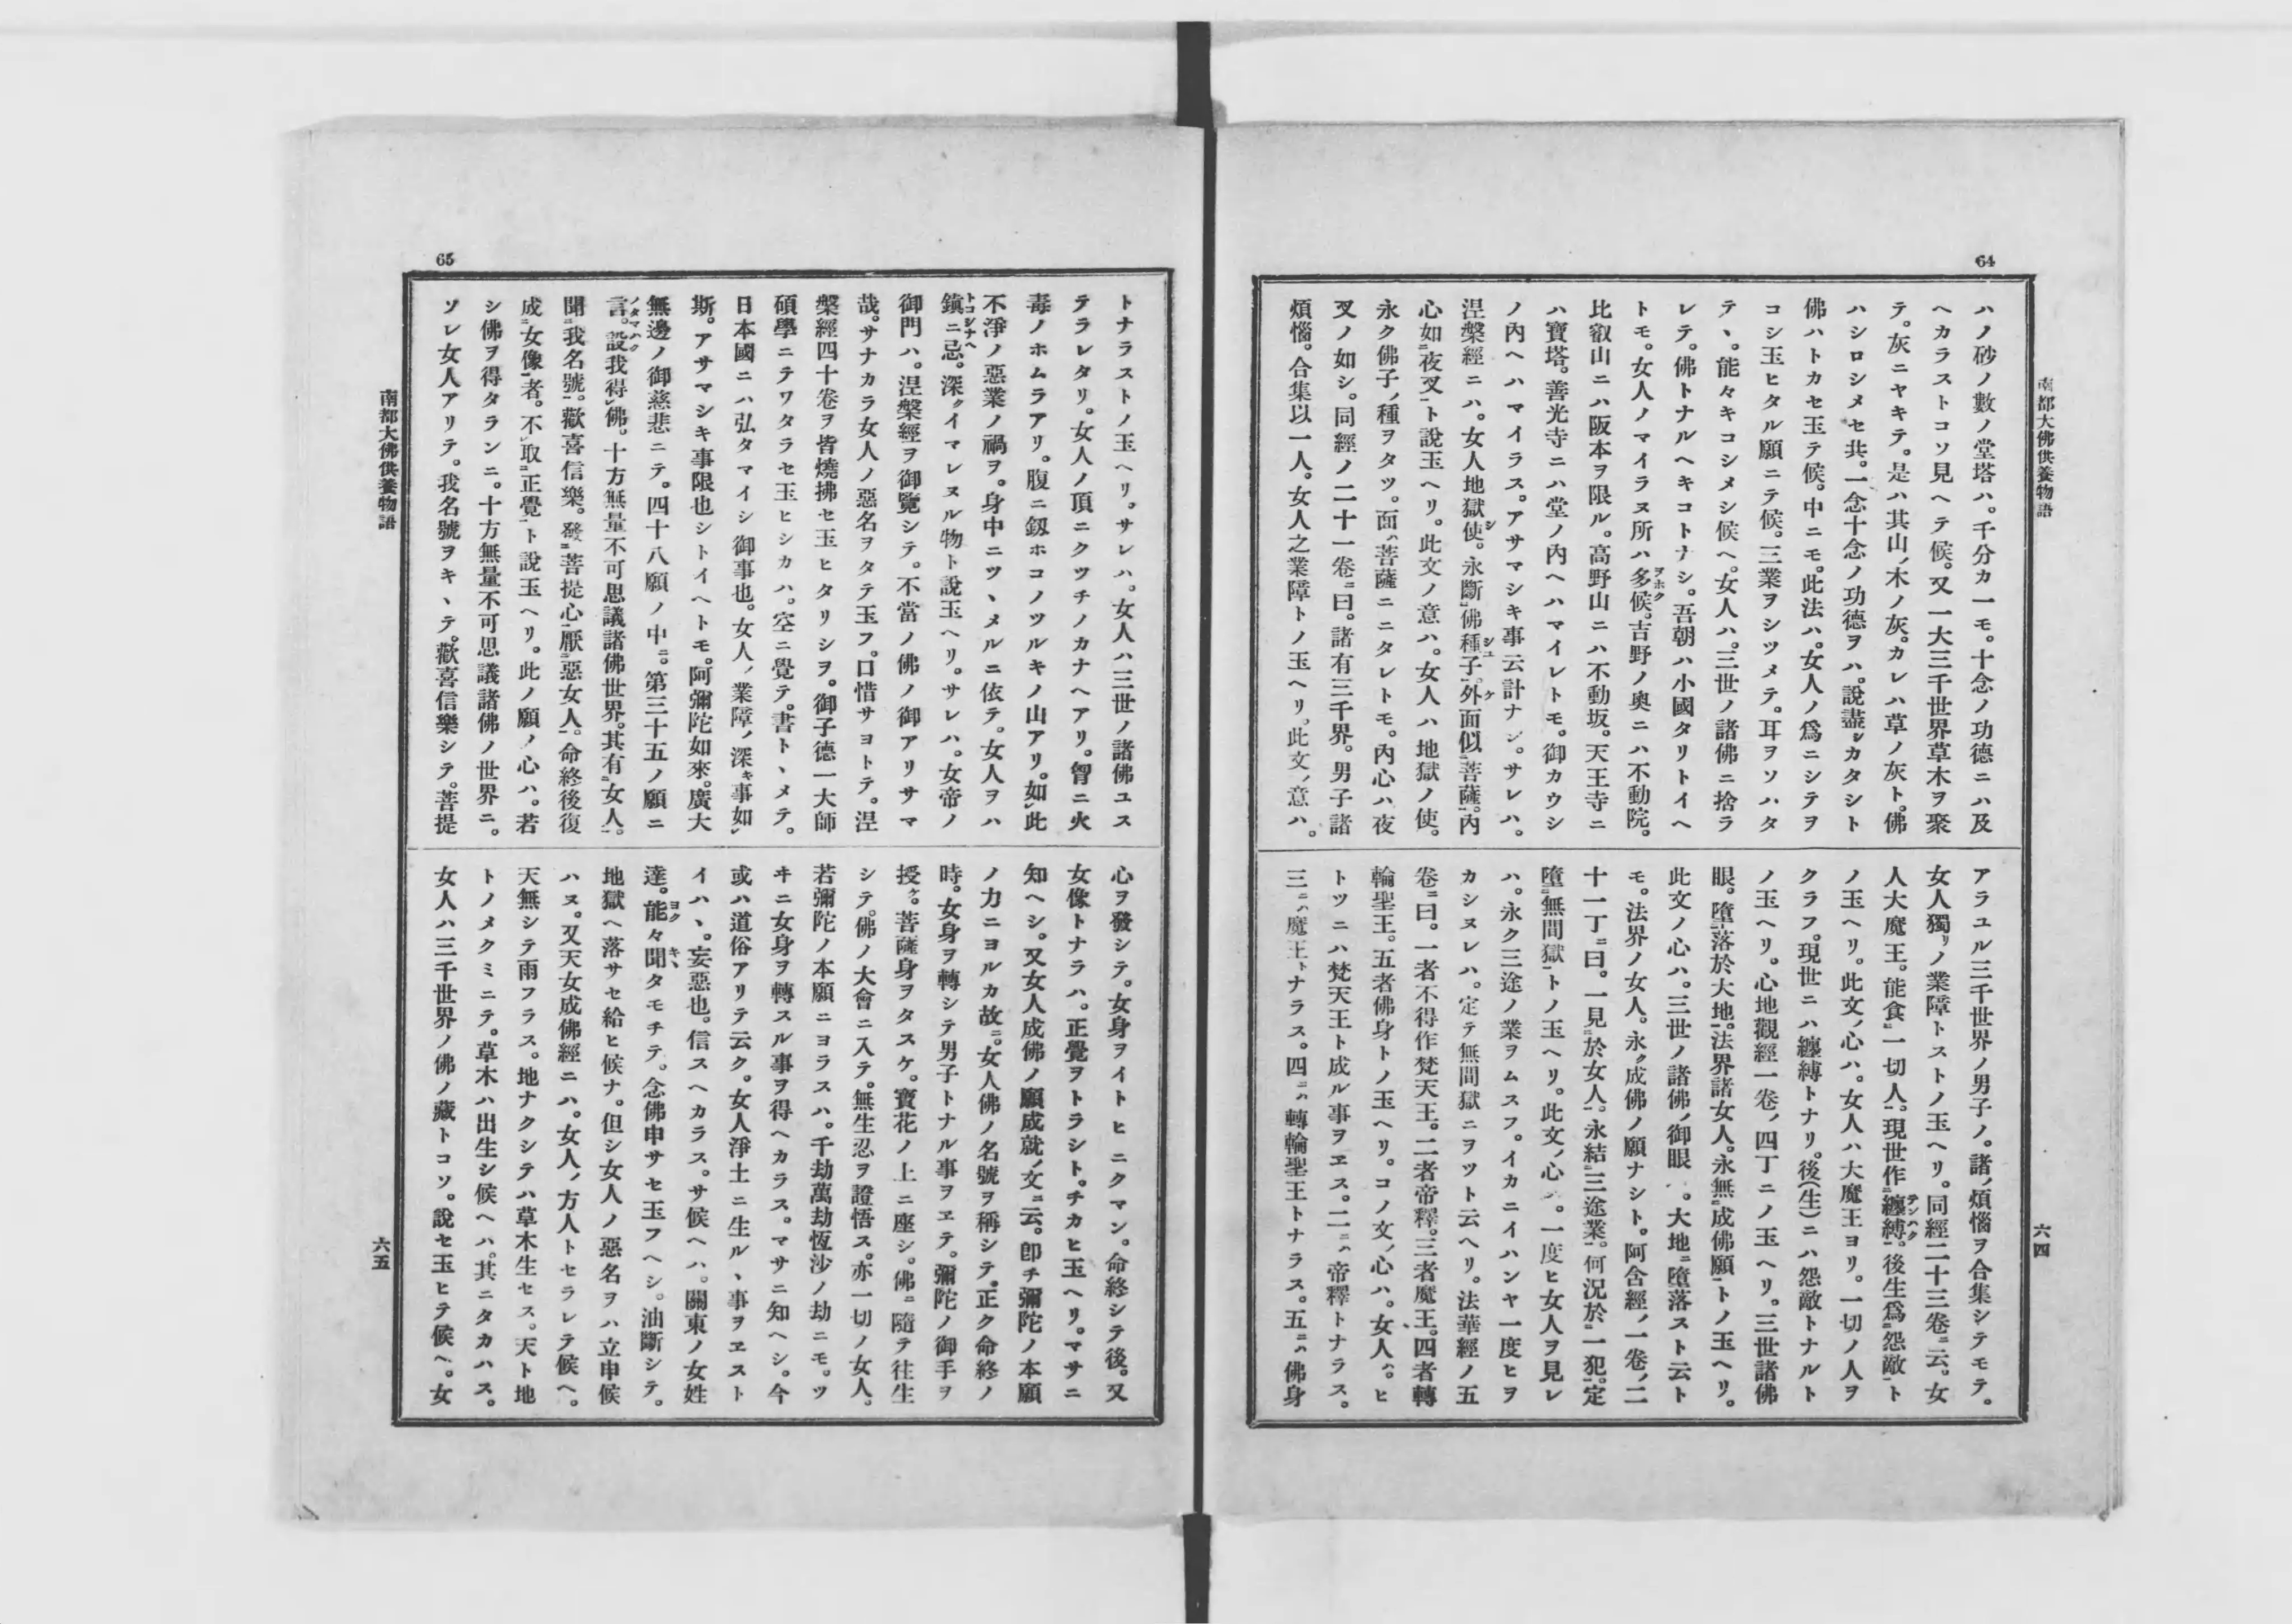 64
南都大佛供養物語
ハノ砂ノ數ノ堂塔ハ。千分カ一モ。十念ノ功德ニハ及
ヘカラストコソ見ヘテ候。又一大三千世界草木ヲ聚
テ。灰ニヤキテ。是ハ其山ノ木ノ灰。カレハ草ノ灰ト。佛
ハシロシメセ共。一念十念ノ功德ヲハ。說盡シカタシト
佛ハトカセ玉テ候。中ニモ。此法ハ。女人ノ爲ニシテヲ
コシ玉ヒタル願ニテ候。三業ヲシツメテ。耳ヲソハタ
テヽ。能々キコシメシ候ヘ。女人ハ。三世ノ諸佛ニ捨ラ
レテ。佛トナルヘキコトナシ。吾朝ハ小國タリトイヘ
トモ。女人ノマイラヌ所ハ多候。吉野ノ奧ニハ不動院。
比叡山ニハ阪本ヲ限ル。高野山ニハ不動坂。天王寺ニ
ハ寶塔。善光寺ニハ堂ノ內ヘハマイレトモ。御カウシ
ノ內ヘハマイラス。アサマシキ事云計ナシ。サレハ。
涅槃經ニハ。女人地獄使。永斷佛種子。外面似菩薩。內
心如夜叉ト說玉ヘリ。此文ノ意ハ。女人ハ地獄ノ使。
永ク佛子ノ種ヲタツ。面ハ菩薩ニニタレトモ。內心ハ夜
叉ノ如シ。同經ノ二十一卷ニ曰。諸有三千界。男子諸
煩惱。合集以一人。女人之業障トノ玉ヘリ。此文ノ意ハ。
アラユル三千世界ノ男子ノ。諸ノ煩惱ヲ合集シテモテ。
女人獨リノ業障トストノ玉ヘリ。同經二十三卷ニ云。女
人大魔王。能食一切人。現世作纏縛。後生爲怨敵ト
ノ玉ヘリ。此文ノ心ハ。女人ハ大魔王ヨリ。一切ノ人ヲ
クラフ。現世ニハ纏縛トナリ。後(生)ニハ怨敵トナルト
ノ玉ヘリ。心地觀經一卷ノ四丁ニノ玉ヘリ。三世諸佛
眼。墮落於大地。法界諸女人。永無成佛願トノ玉ヘリ。
此文ノ心ハ。三世ノ諸佛ノ御眼。大地ニ墮落スト云ト
モ。法界ノ女人。永ク成佛ノ願ナシト。阿含經ノ一卷ノ二
十一丁ニ曰。一見於女人。永結三途業。何況於一犯。定
墮無間獄トノ玉ヘリ。此文ノ心ハ。一度ヒ女人ヲ見レ
ハ。永ク三途ノ業ヲムスフ。イカニイハンヤ一度ヒヲ
カシヌレハ。定テ無間獄ニヲツト云ヘリ。法華經ノ五
卷ニ曰。一者不得作梵天王。二者帝釋。三者魔王。四者轉
輪聖王。五者佛身トノ玉ヘリ。コノ文ノ心ハ。女人ハ。ヒ
トツニハ梵天王ト成ル事ヲエス。二ニハ帝釋トナラス。
三ニハ魔王トナラス。四ニハ轉輪聖王トナラス。五ニハ佛身
六四
65
南都大佛供養物語
トナラストノ玉ヘリ。サレハ。女人ハ三世ノ諸佛ユス
テラレタリ。女人ノ頂ニクツチノカナヘアリ。胷ニ火
毒ノホムラアリ。腹ニ釼ホコノツルキノ山アリ。如此
不淨ノ惡業ノ禍ヲ。身中ニツヽメルニ依テ。女人ヲハ
鎭ニ忌。深クイマレヌル物ト說玉ヘリ。サレハ。女帝ノ
御門ハ。涅槃經ヲ御覽シテ。不當ノ佛ノ御アリサマ
哉。サナカラ女人ノ惡名ヲタテ玉フ。口惜サヨトテ。涅
槃經四十卷ヲ皆燒拂セ玉ヒタリシヲ。御子德一大師
碩學ニテワタラセ玉ヒシカハ。空ニ覺テ。書トヽメテ。
日本國ニハ弘タマイシ御事也。女人ノ業障ノ深キ事如
斯。アサマシキ事限也シトイヘトモ。阿彌陀如來。廣大
無邊ノ御慈悲ニテ。四十八願ノ中ニ。第三十五ノ願ニ
言。設我得佛。十方無量不可思議諸佛世界。其有女人。
聞我名號。歡喜信樂。發菩提心。厭惡女人。命終後復
成女像者。不取正覺ト說玉ヘリ。此ノ願ノ心ハ。若
シ佛ヲ得タランニ。十方無量不可思議諸佛ノ世界ニ。
ソレ女人アリテ。我名號ヲキヽテ。歡喜信樂シテ。菩提
心ヲ發シテ。女身ヲイトヒニクマン。命終シテ後。又
女像トナラハ。正覺ヲトラシト。チカヒ玉ヘリ。マサニ
知ヘシ。又女人成佛ノ願成就ノ文ニ云。卽チ彌陀ノ本願
ノ力ニヨルカ故ニ。女人佛ノ名號ヲ稱シテ。正ク命終ノ
時。女身ヲ轉シテ男子トナル事ヲヱテ。彌陀ノ御手ヲ
授ケ。菩薩身ヲタスケ。寶花ノ上ニ座シ。佛ニ隨テ往生
シテ。佛ノ大會ニ入テ。無生忍ヲ證悟ス。亦一切ノ女人。
若彌陀ノ本願ニヨラスハ。千劫萬劫恆沙ノ劫ニモ。ツ
ヰニ女身ヲ轉スル事ヲ得ヘカラス。マサニ知ヘシ。今
或ハ道俗アリテ云ク。女人淨土ニ生ルヽ事ヲヱスト
イハヽ。妄惡也。信スヘカラス。サ候ヘハ。關東ノ女姓
達。能々聞タモチテ。念佛申サセ玉フヘシ。油斷シテ。
地獄ヘ落サセ給ヒ候ナ。但シ女人ノ惡名ヲハ立申候
ハヌ。又天女成佛經ニハ。女人ノ方人トセラレテ候ヘ。
天無シテ雨フラス。地ナクシテハ草木生セス。天ト地
トノメクミニテ。草木ハ出生シ候ヘハ。其ニタカハス。
女人ハ三千世界ノ佛ノ藏トコソ。說セ玉ヒテ候ヘ。女
六五